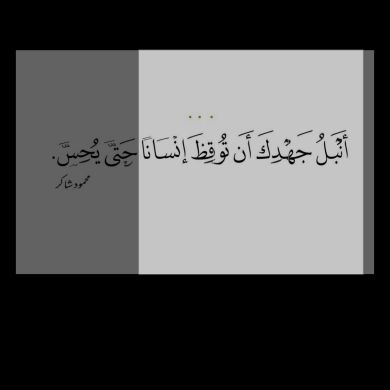 ...
أَنْبَلُ جَهْدِكَ أَن تُوقِظَ إنْسَانًا حَتَّى يُحِسَّ.
محمود شاكر